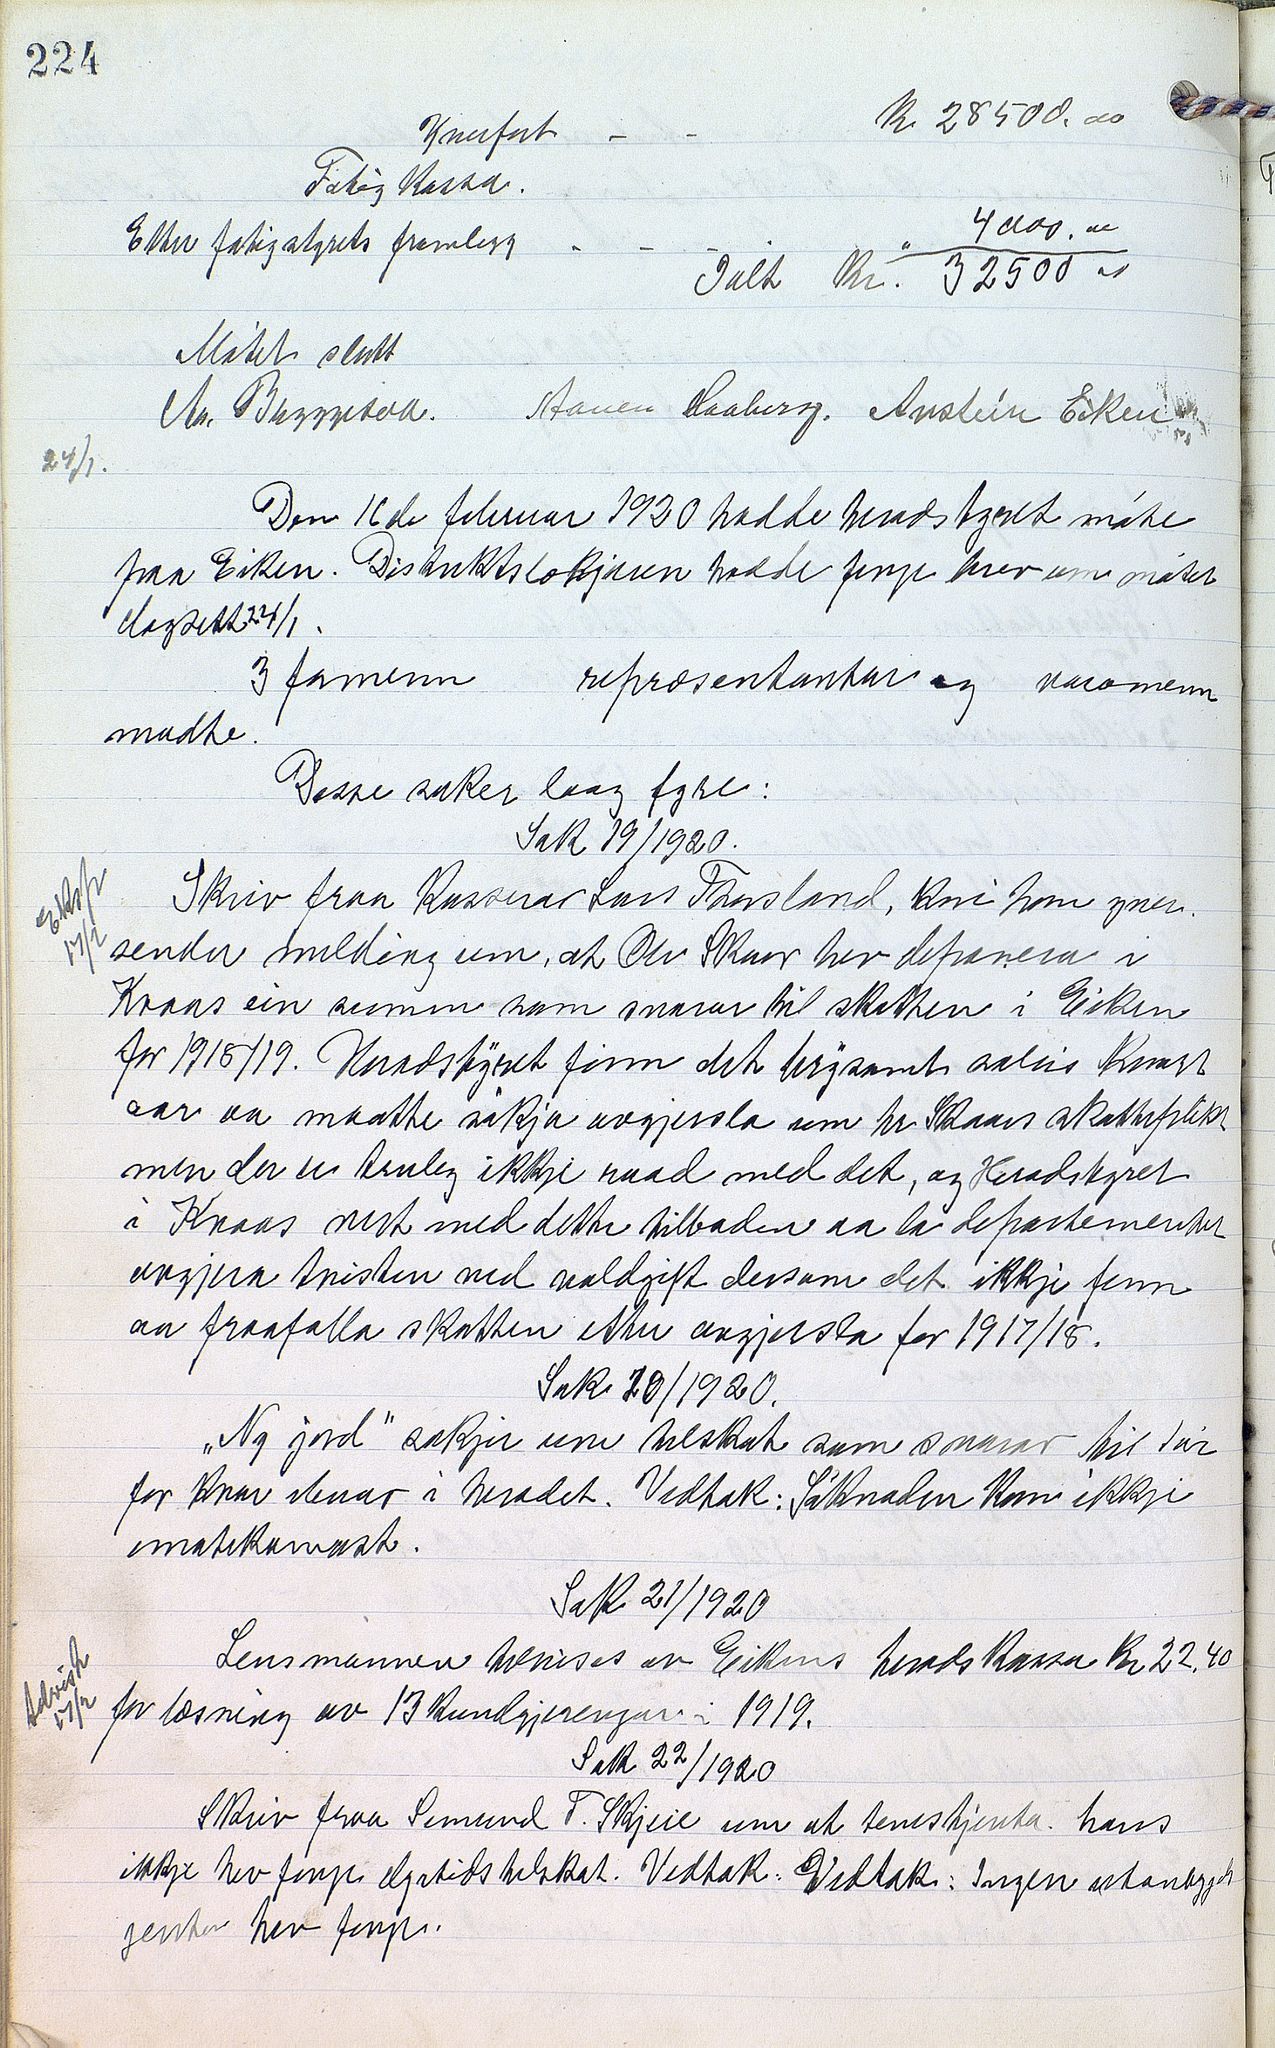 224
Yverført - - Kr. 28500.00
Fatigkassa.
Etter fatigstyrets framlegg - - - " 4000.00
Ialt Kr. 32500 00
Møtet slutt
Aa. Bryggesaa. Aanen Aaberg. Anstein Eiken
24/1.
Den 16de februar 1920 hadde heradstyret møte
fraa Eiken. Distriktslækjaren hadde fenge brev um møtet
dagsett 24/1.
3 formenn representantar og varamenn
mødte.
Desse saker laag fyre:
Sak 19/1920.
Eksp 17/2
Skriv fraa Kasserar Lars Thorsland, kvi hom yver-
sender melding um, at Olv Skaar hev deponera i
Kvaas ein summ som svarar til skatten i Eiken
for 1918/19. Heradstyret finn det brysamt soleis kvart
aar aa maatte søkja avgjersla um hr Skaars skatteplikt
men der er truleg ikkje raad med det, og Heradstyret
i Kvaas vert med dette tilboden aa la departementet
avgjera tvisten ved voldgift dersom det ikkje finn
aa fraafalla skatten etter avgjersla for 1917/18.
Sak 20/1920.
"Ny jord" søkjer um tilskot som svarar til 1 øre
for kvar ibuar i heradet. Vedtak: Søknaden kom ikkje
imøtekomast.
Sak 21/1920
Advist 17/2
Lensmannen tilvises av Eikens heradskassa Kr 22,40
for læsning av 13 kundgjerengar i 1919.
Sak 22/1920
Skriv fraa Semund T. Skjeie um at tenestjenta hans
ikkje hev fenge dyrtidstilskot. Vedtak: Vedtak: Ingen utanbygds
jenter hev fenge.